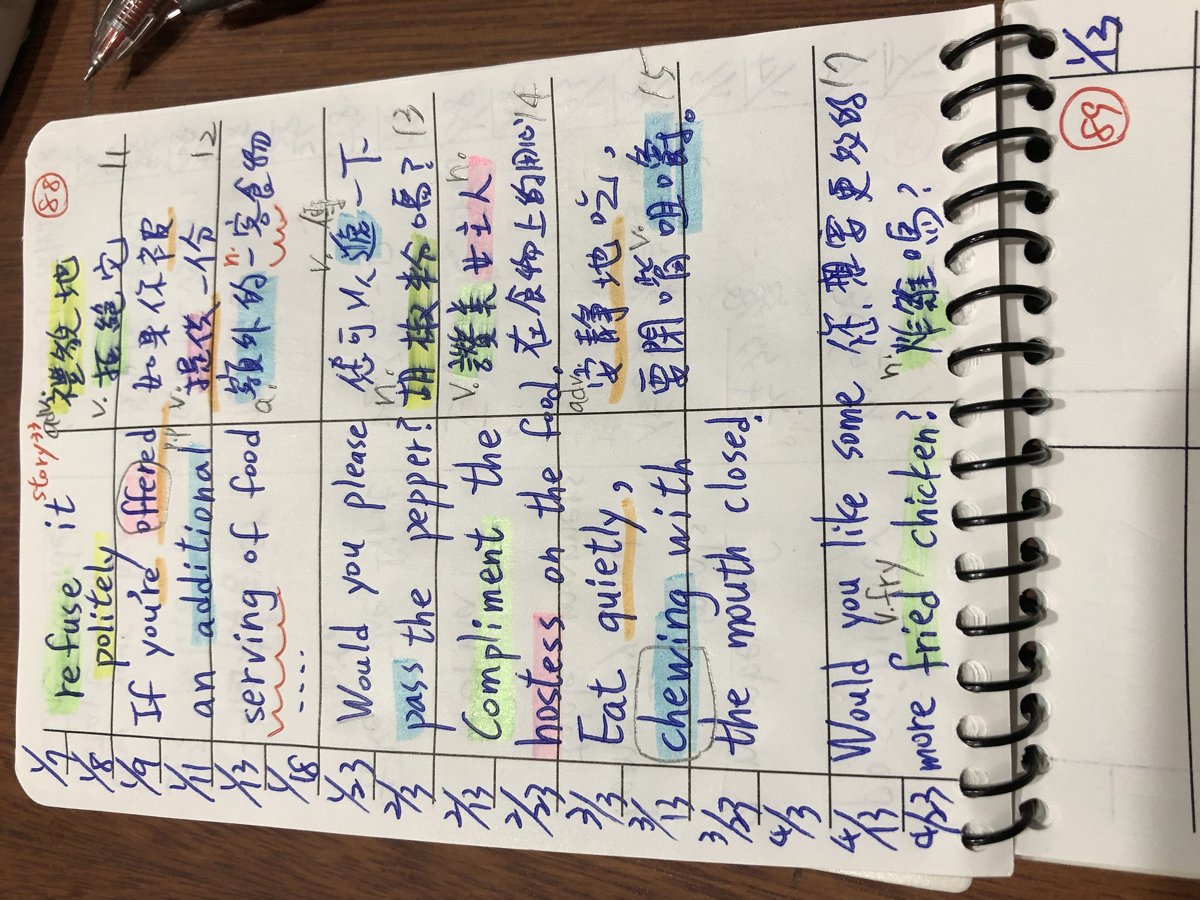 88
refuse it story33
politely
adv. 禮貌地
v. 拒絕它
11
If you're offered
p.p
an additional
serving of food
....
如果你被
v. 提供一份 12
a. 額外的 n. 一客食物
Would you please
pass the pepper?
v. 傳
您可以遞一下
n. 胡椒粉嗎? 13
Compliment the
hostess on the food.
v. 讚美女主人 n.
在食物上的用心 14
Eat quietly,
chewing with
the mouth closed.
adv. 安靜地吃, 15
要閉嘴 v. 咀嚼。
Would you like some
v. fry
more fried chicken?
您想要更多的 17
n. 炸雞嗎?
1/7
1/8
1/9
1/11
1/13
1/18
1/23
2/3
2/13
2/23
3/3
3/13
3/23
4/3
4/13
4/23
89
1/13